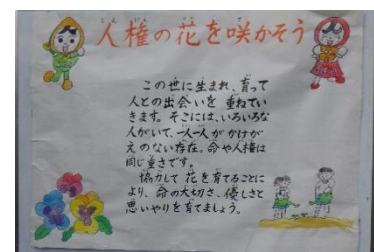 人権の花を咲かそう
この世に生まれ、育って
人との出会いを重ねてい
きます。そこには、いろいろな
人がいて、一人一人がかけが
えのない存在。命や人権は
同じ重さです。
協力して花を育てることに
より、命の大切さ、優しさと
思いやりを育てましょう。